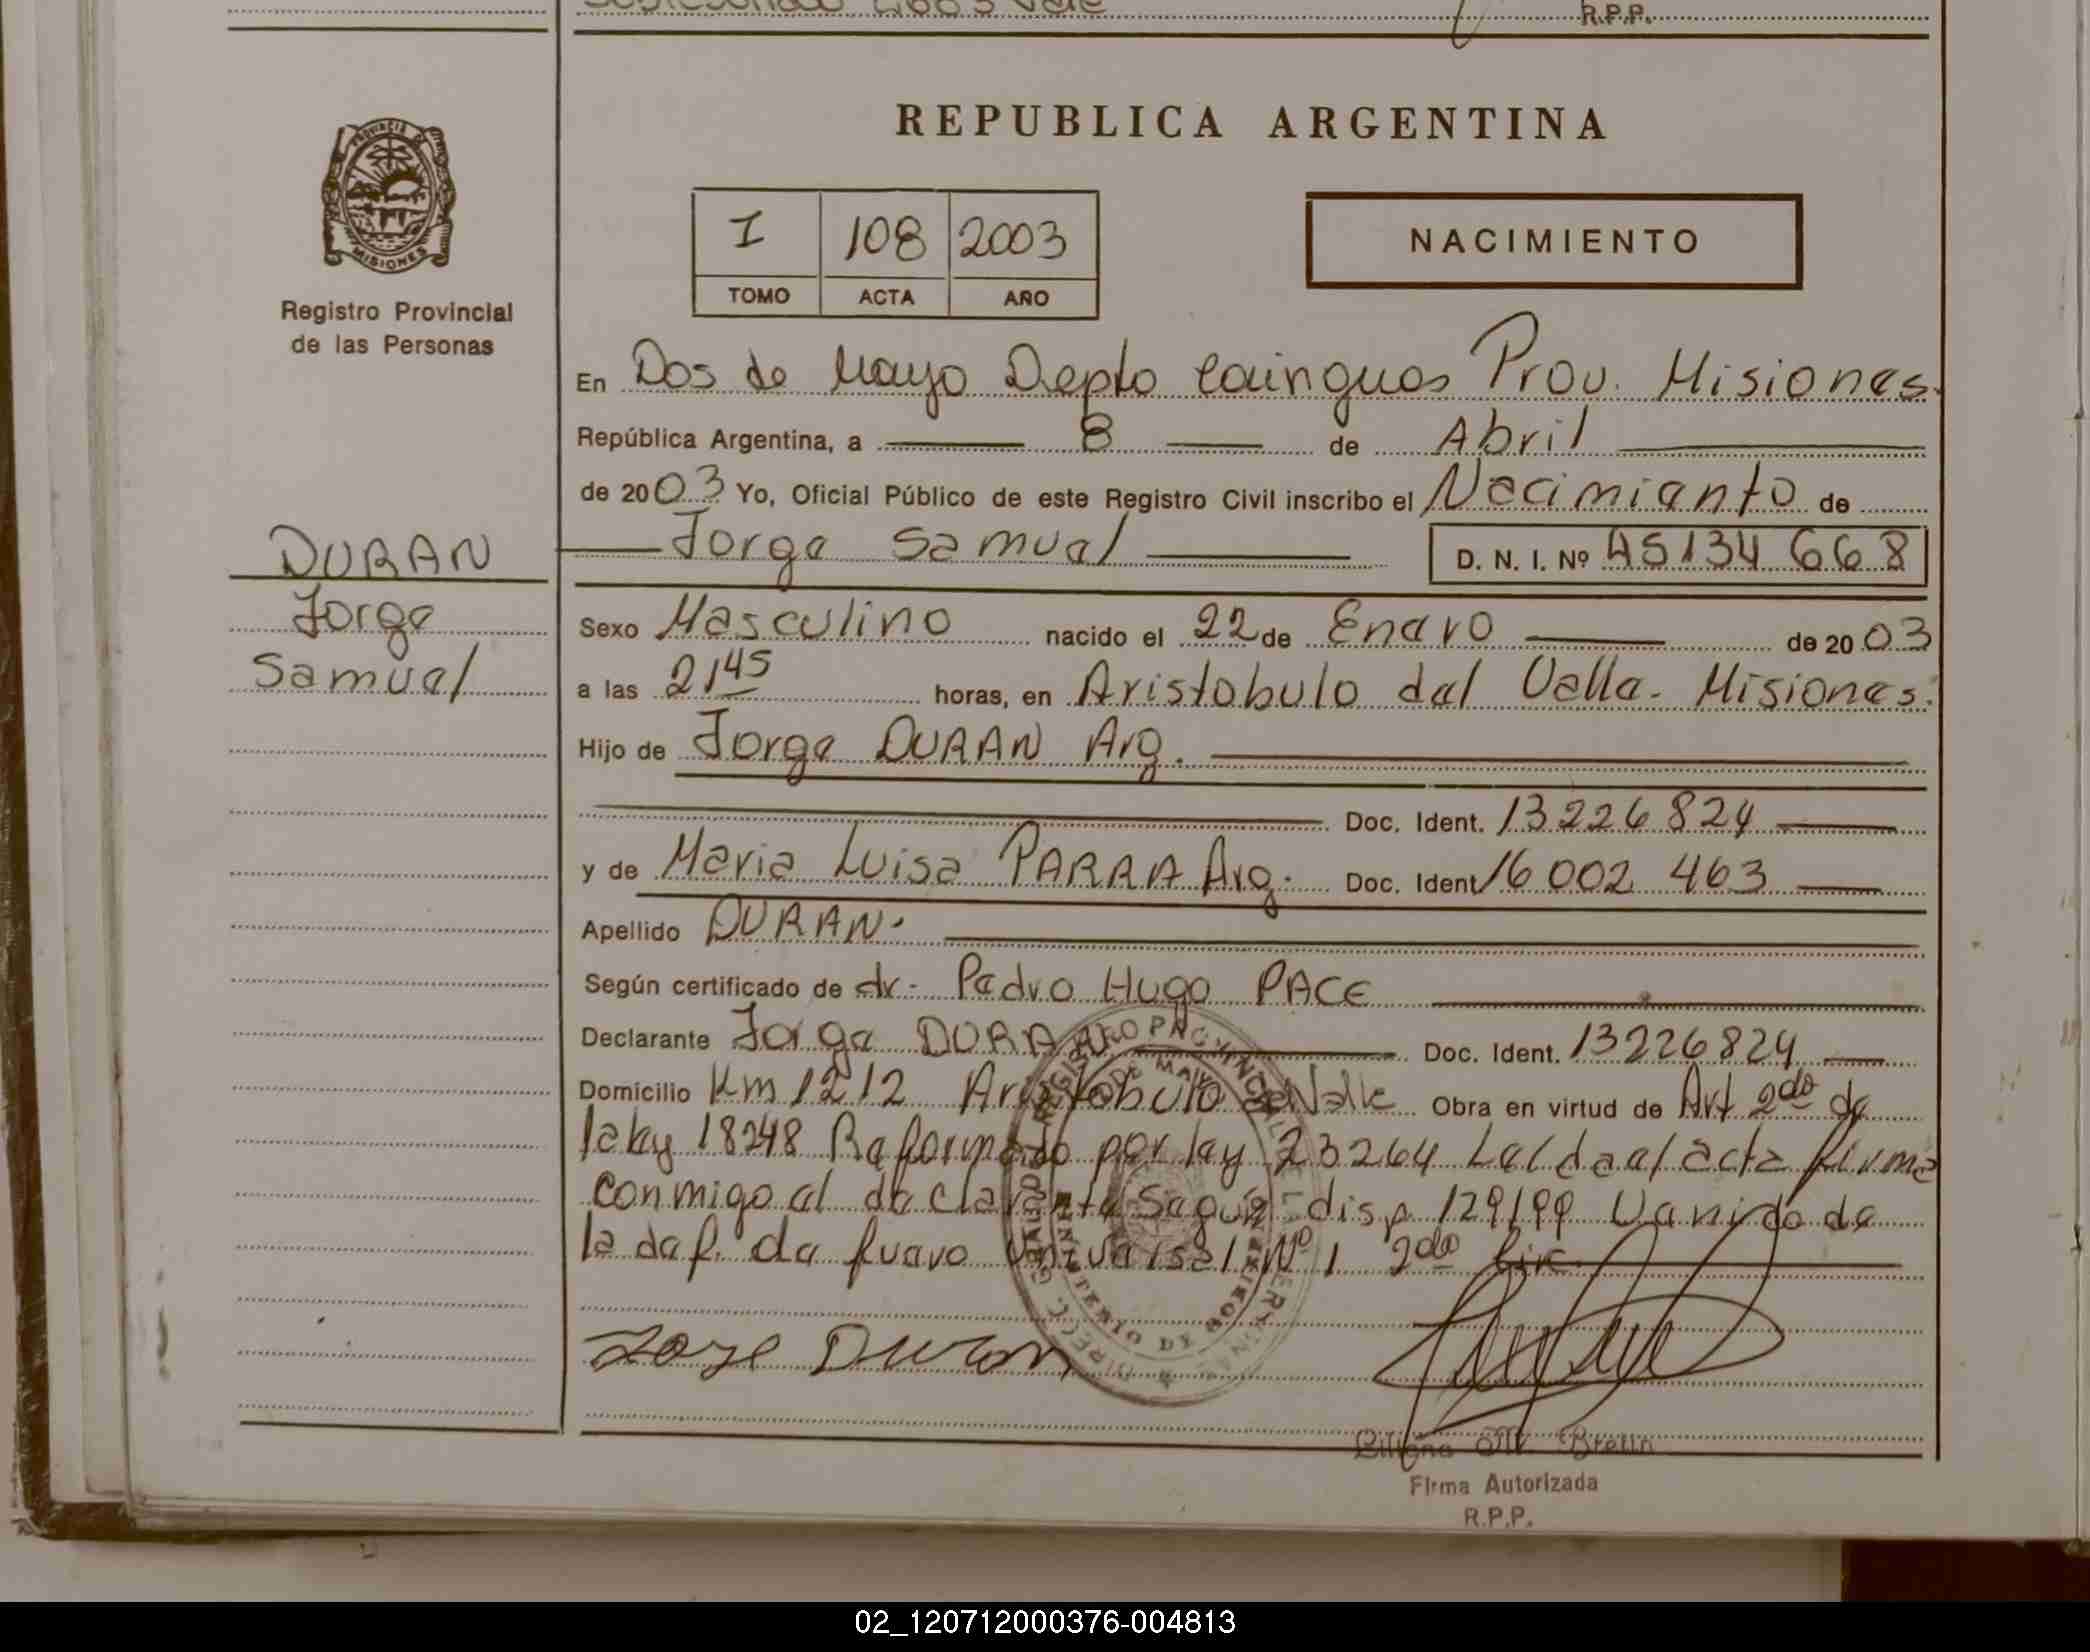 R.P.P.
REPUBLICA ARGENTINA
PROVINCIA DE
MISIONES
Registro Provincial
de las Personas
I 108 2003
TOMO ACTA AÑO
NACIMIENTO
En Dos de Mayo Depto Cainguas Prov. Misiones.
República Argentina, a 8 de Abril
de 2003 Yo, Oficial Público de este Registro Civil inscribo el Nacimiento de
Jorge Samuel D. N. I. Nº 45134668
DURAN
Jorge
Samuel
Sexo Masculino nacido el 22 de Enero de 2003
a las 21 45 horas, en Aristobulo del Valle. Misiones.
Hijo de Jorge DURAN Arg.
Doc. Ident. 13226824
y de Maria Luisa PARRA Arg. Doc. Ident 16 002 463
Apellido DURAN.
Según certificado de dr. Pedro Hugo PACE
Declarante Jorge DURAN Doc. Ident. 13226824
Domicilio Km 1212 Aristobulo del Valle Obra en virtud de Art 2do de
la ley 18248 Reformado por ley 23264 Leida el acta firma
conmigo el declarante Según disp 129/99 Venido de
la def. de fuero universal Nº 1 2da Cir.
Jorge Duran
Firma Autorizada
R.P.P.
02_120712000376-004813